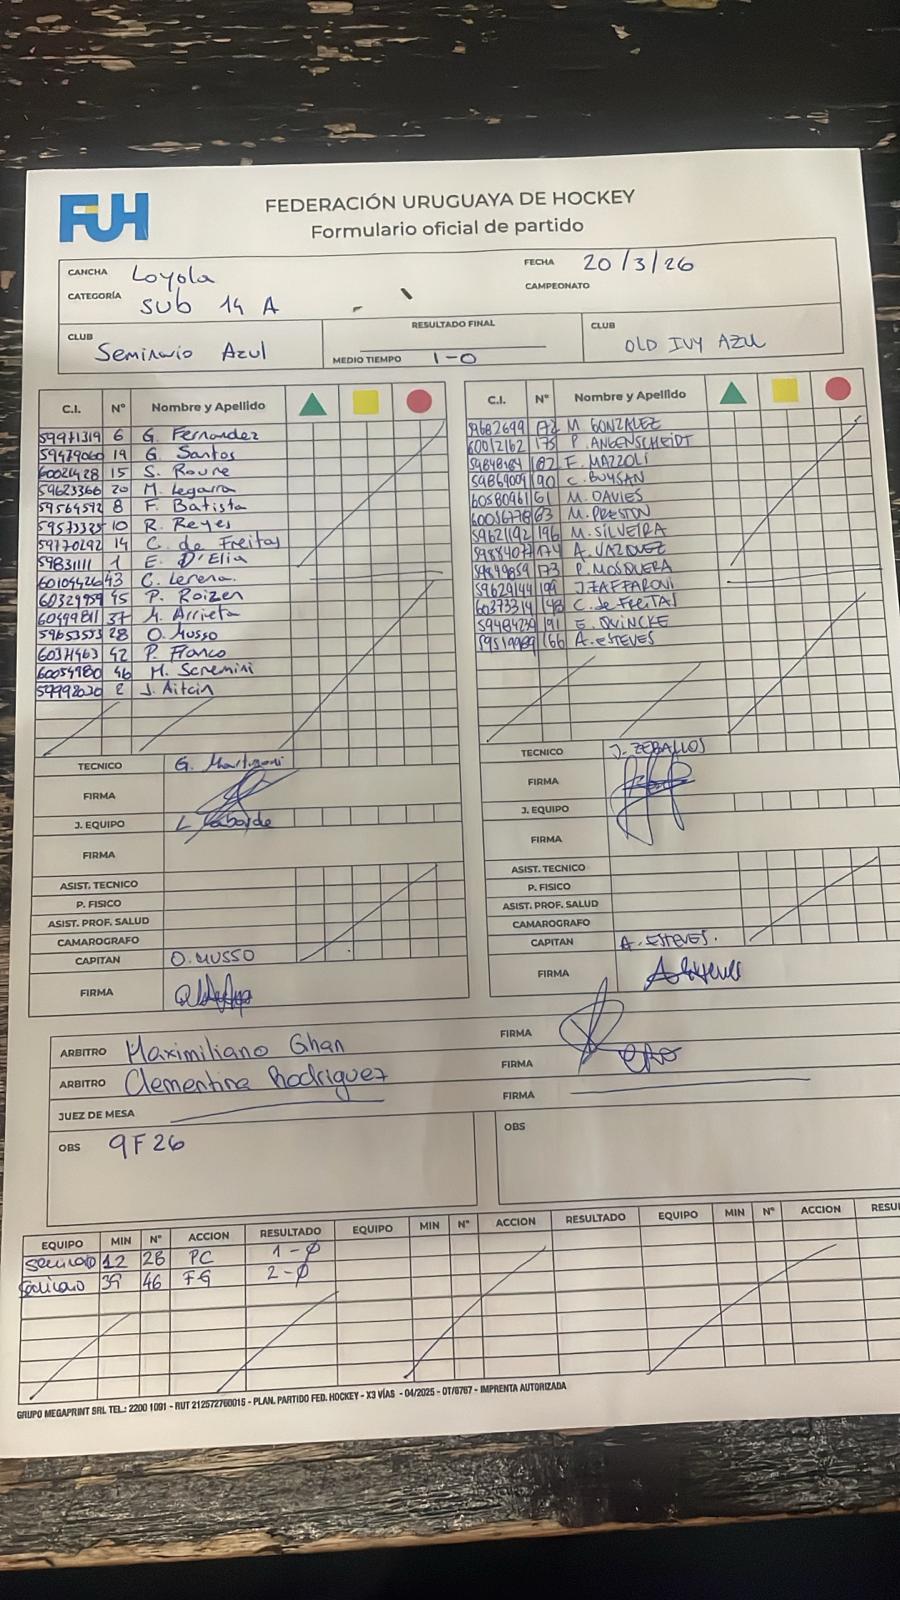 FUH
FEDERACIÓN URUGUAYA DE HOCKEY
Formulario oficial de partido
CANCHA Loyola
FECHA 20/3/26
CATEGORÍA SUB 14 A
CAMPEONATO
CLUB Seminario Azul
RESULTADO FINAL
MEDIO TIEMPO 1-0
CLUB OLD IVY AZUL
C.I. Nº Nombre y Apellido
59971319 6 G. Fernandez
59479060 19 G. Santos
60021428 15 S. Roure
59623366 20 M. Legarra
59564592 8 F. Batista
59573325 10 R. Reyes
59770292 14 C. de Freitas
59831111 1 E. D'Elia
60104426 43 C. Lerena.
60329959 45 P. Roizen
60499811 37 M. Arrieta
59653553 28 O. Musso
60371463 42 P. Franco
60054980 46 M. Scremini
59992020 2 J. Aitcin
TECNICO G. Martinoni
FIRMA
J. EQUIPO L Laborde
FIRMA
ASIST. TECNICO
P. FISICO
ASIST. PROF. SALUD
CAMAROGRAFO
CAPITAN O. MUSSO
FIRMA
C.I. Nº Nombre y Apellido
59682699 172 M. GONZALEZ
60012162 175 P. ANGENSCHEIDT
59848184 182 F. MAZZOLI
59869009 190 C. BUYSAN
60580961 161 M. DAVIES
60056778 163 M. PRESTON
59621192 196 M. SILVEIRA
59884077 174 A. VAZQUEZ
59849859 173 P. MOSQUERA
59629144 199 J ZAFFARONI
60373314 148 C. de FREITAS
59484239 191 E. QUINCKE
59519989 166 A. ESTEVES
TECNICO J. ZEBALLOS
FIRMA
J. EQUIPO
FIRMA
ASIST. TECNICO
P. FISICO
ASIST. PROF. SALUD
CAMAROGRAFO
CAPITAN A. ESTEVES.
FIRMA
ARBITRO Maximiliano Ghan FIRMA
ARBITRO Clementina Rodriguez FIRMA
JUEZ DE MESA FIRMA
OBS 9F26
OBS
EQUIPO MIN Nº ACCION RESULTADO EQUIPO MIN Nº ACCION RESULTADO EQUIPO MIN Nº ACCION RESU
Seminario 12 28 PC 1-0
Seminario 39 46 FG 2-0
GRUPO MEGAPRINT SRL TEL.: 2200 1091 - RUT 212572760015 - PLAN. PARTIDO FED. HOCKEY - X3 VÍAS - 04/2025 - OT/6767 - IMPRENTA AUTORIZADA